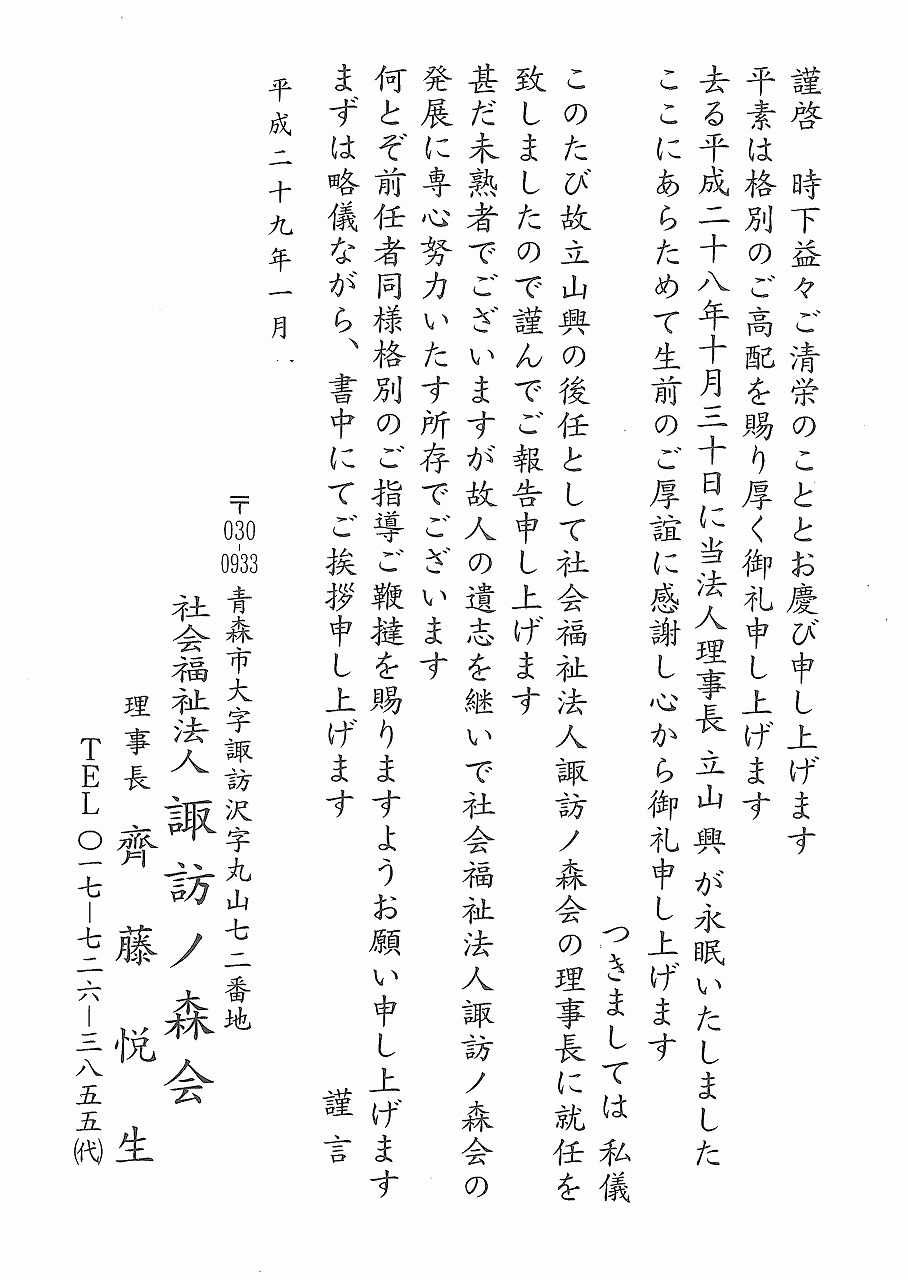 謹啓　時下益々ご清栄のこととお慶び申し上げます
平素は格別のご高配を賜り厚く御礼申し上げます
去る平成二十八年十月三十日に当法人理事長 立山 興 が永眠いたしました
ここにあらためて生前のご厚誼に感謝し心から御礼申し上げます
つきましては 私儀
このたび故立山興の後任として社会福祉法人諏訪ノ森会の理事長に就任を
致しましたので謹んでご報告申し上げます
甚だ未熟者でございますが故人の遺志を継いで社会福祉法人諏訪ノ森会の
発展に専心努力いたす所存でございます
何とぞ前任者同様格別のご指導ご鞭撻を賜りますようお願い申し上げます
まずは略儀ながら、書中にてご挨拶申し上げます
謹言
平成二十九年一月
〒030-0933 青森市大字諏訪沢字丸山七二番地
社会福祉法人 諏訪ノ森会
理事長 齊藤悦生
TEL〇一七－七二六－三八五五(代)